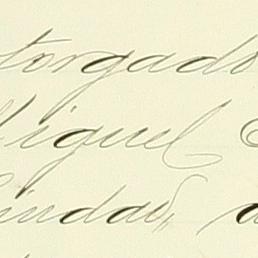 torgado
Miguel
Lindad,